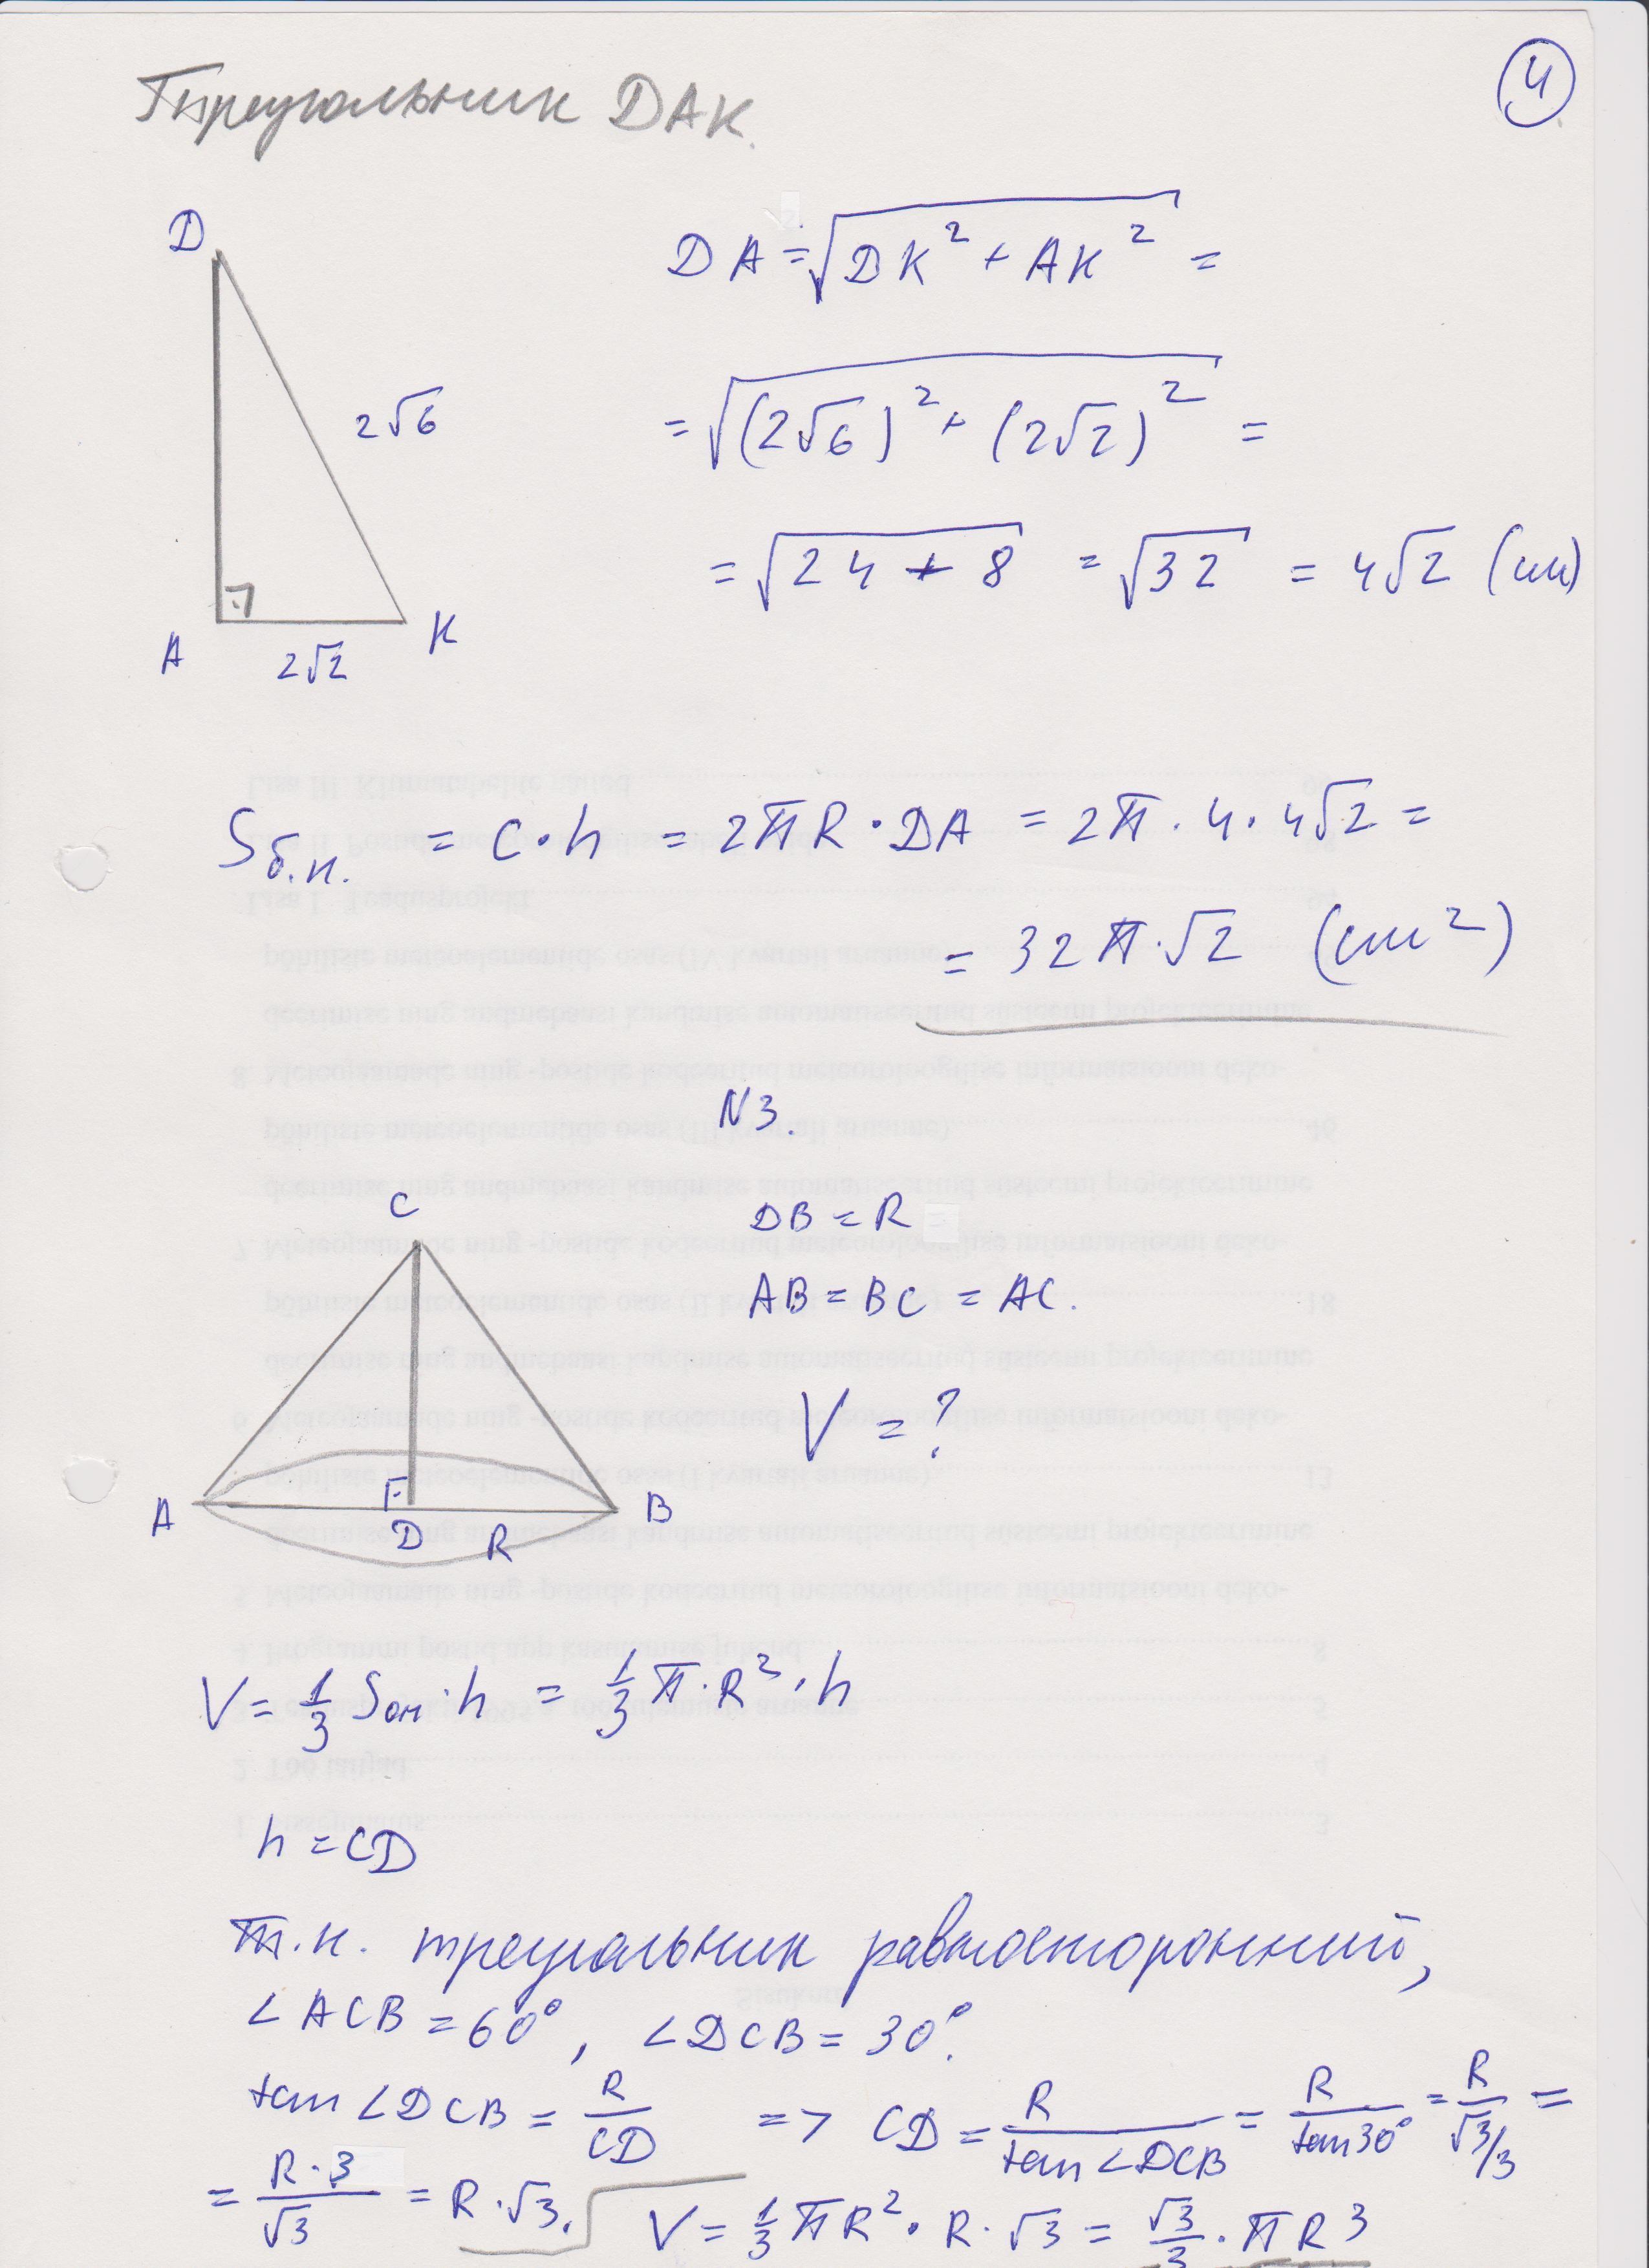 4
Треугольник DAK.
D
2√6
A
2√2
K
DA = √(DK² + AK²) =
= √((2√6)² + (2√2)²) =
= √(24 + 8) = √32 = 4√2 (см)
Sб.п. = C·h = 2πR·DA = 2π·4·4√2 =
= 32π·√2 (см²)
N3.
C
A
D
R
B
DB = R
AB = BC = AC.
V = ?
V = 1/3 Sосн·h = 1/3 π·R²·h
h = CD
Т.к. треугольник равносторонний,
∠ACB = 60°, ∠DCB = 30°.
tan∠DCB = R/CD => CD = R/tan∠DCB = R/tan30° = R/(√3/3) =
= R·3/√3 = R·√3. V = 1/3 πR²·R·√3 = √3/3·πR³